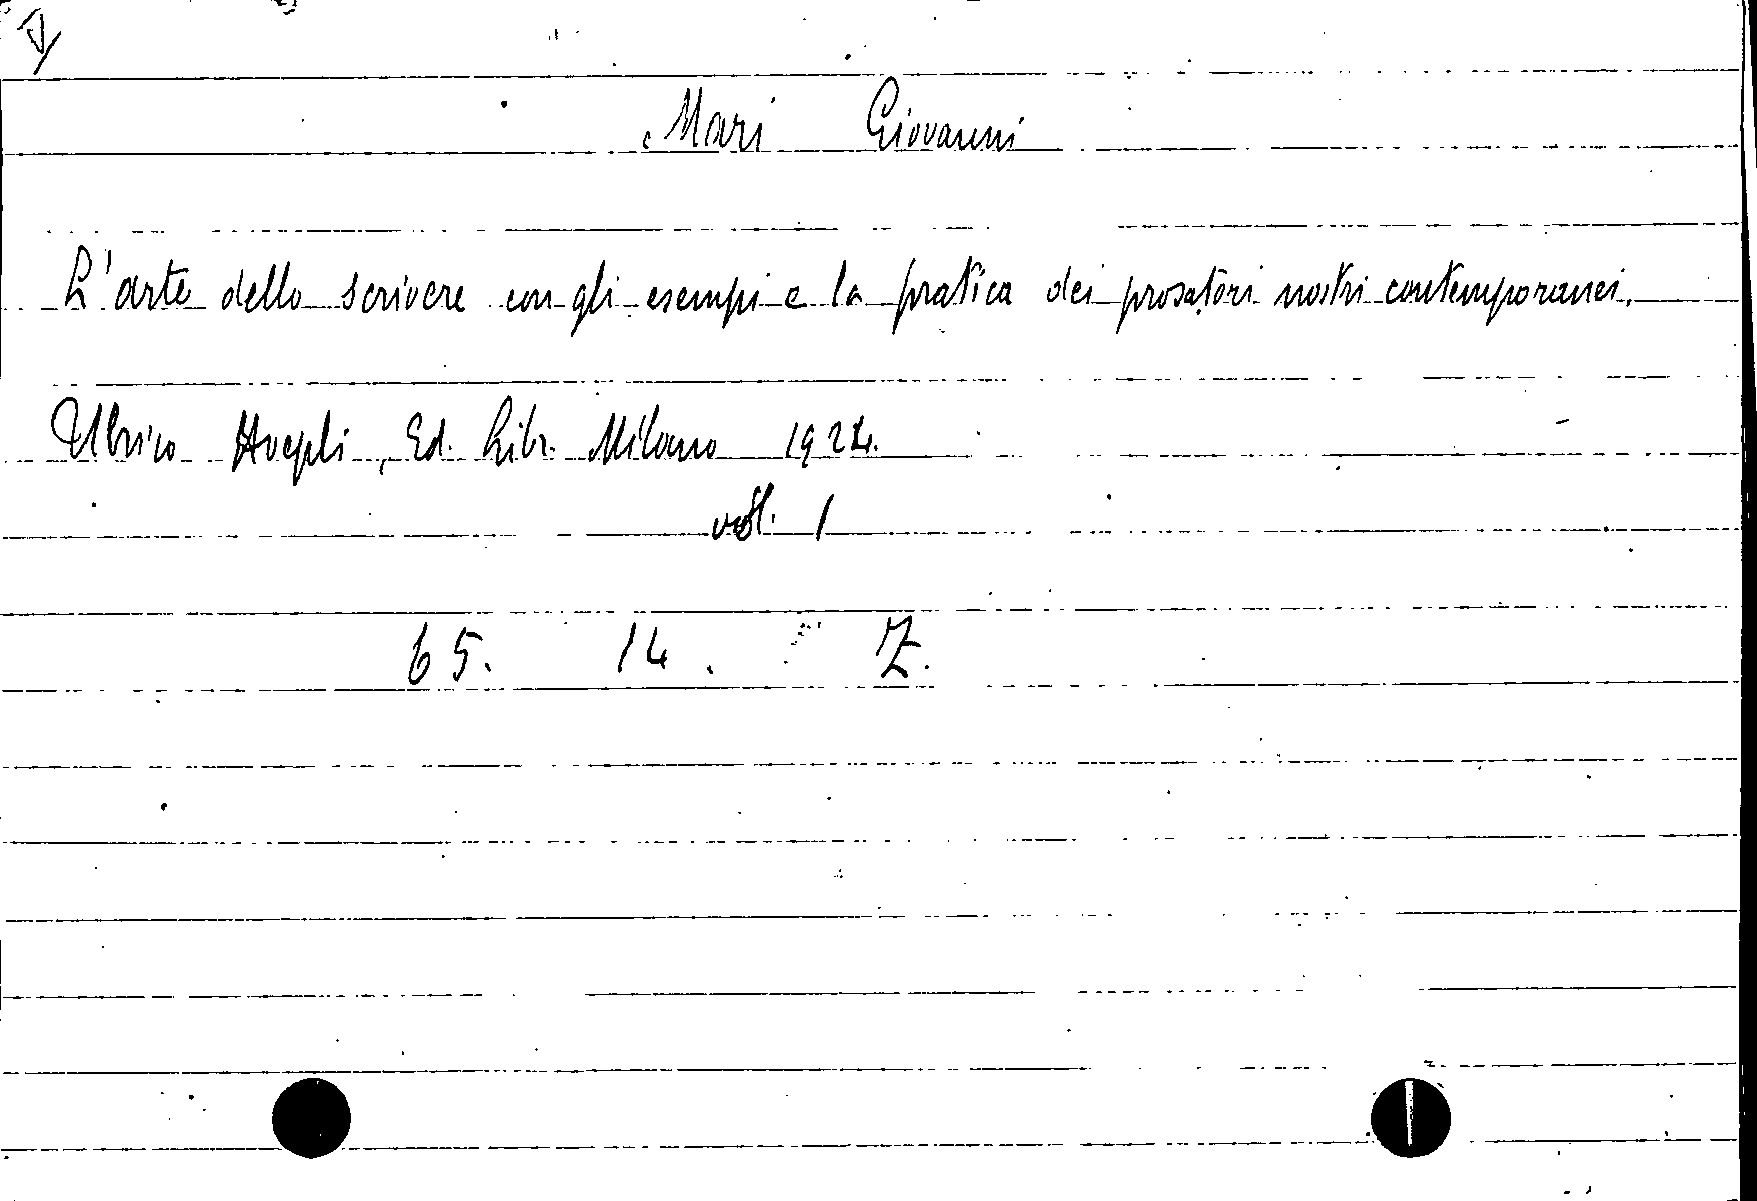 Mari Giovanni
L'arte dello scrivere con gli esempi e la pratica dei prosatori nostri contemporanei.
Ulrico Hoepli, Ed. Libr. Milano 1924.
vol. 1
65. 14. Z.